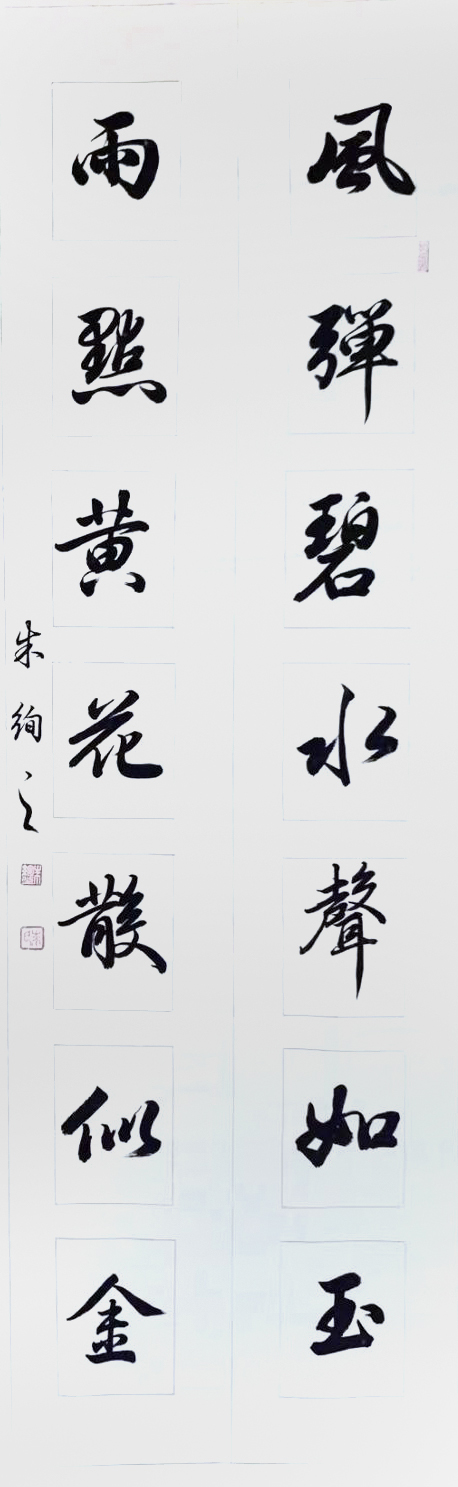 風彈碧水聲如玉
雨點黄花散似金
朱絢之